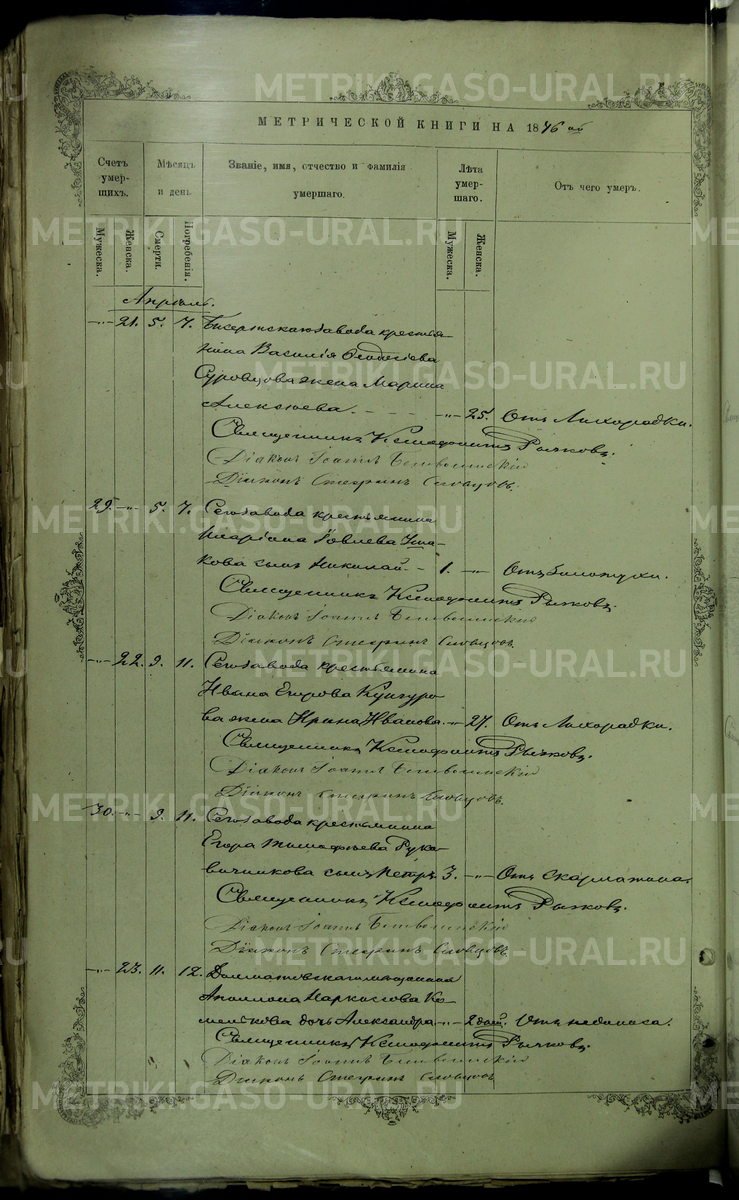 МЕТРИЧЕСКОЙ КНИГИ НА 1876 ой
Счетъ умерших ъ.
Мужеска.
Женска.
Мѣсяцъ и день
Смерти.
Погребенія.
Званіе, имя, отчество и фамилія умершаго.
Лѣта умершаго.
Мужеска.
Женска.
Отъ чего умеръ.
Апрѣль.
21. 5. 7. завода крестья-
нина Василія
Суровцова жена Марина
Алексѣева. 25. Отъ Лихорадки.
Священникъ Ксенофонтъ Рычковъ.
Діаконъ Іоаннъ
Стефанъ Словцовъ.
29. 5. 7. Сего завода крестьянина
Іовлева Уша-
кова сынъ Николай 1. Отъ
Священникъ Ксенофонтъ Рычковъ.
Діаконъ Іоаннъ
Стефанъ Словцовъ.
22. 9. 11. Сего завода крестьянина
Ивана Егорова Кунгуро-
ва жена Ирина Иванова. 27. Отъ Лихорадки.
Священникъ Ксенофонтъ Рычковъ.
Діаконъ Іоаннъ
Стефанъ Словцовъ.
30. 9. 11. Сего завода крестьянина
Егора Тимофеева Рука-
вичникова сынъ Петръ 3. Отъ Скарлатина.
Священникъ Ксенофонтъ Рычковъ.
Діаконъ Іоаннъ
Стефанъ Словцовъ.
23. 11. 12. Далматовскаго мѣщанина
Аполлона Наркисова
дочь Александра 2 дней. Отъ
Священникъ Ксенофонтъ Рычковъ.
Діаконъ Іоаннъ
Стефанъ Словцовъ.
METRIKI.GASO-URAL.RU